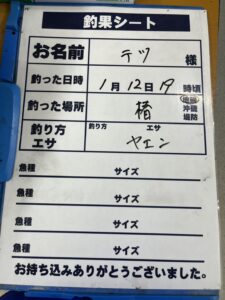 釣果シート
お名前 テツ 様
釣った日時 1月12日19時頃
釣った場所 椿 地磯 沖磯 堤防
釣り方 エサ 釣り方 エサ ヤエン
魚種 サイズ
魚種 サイズ
魚種 サイズ
魚種 サイズ
お持ち込みありがとうございました。